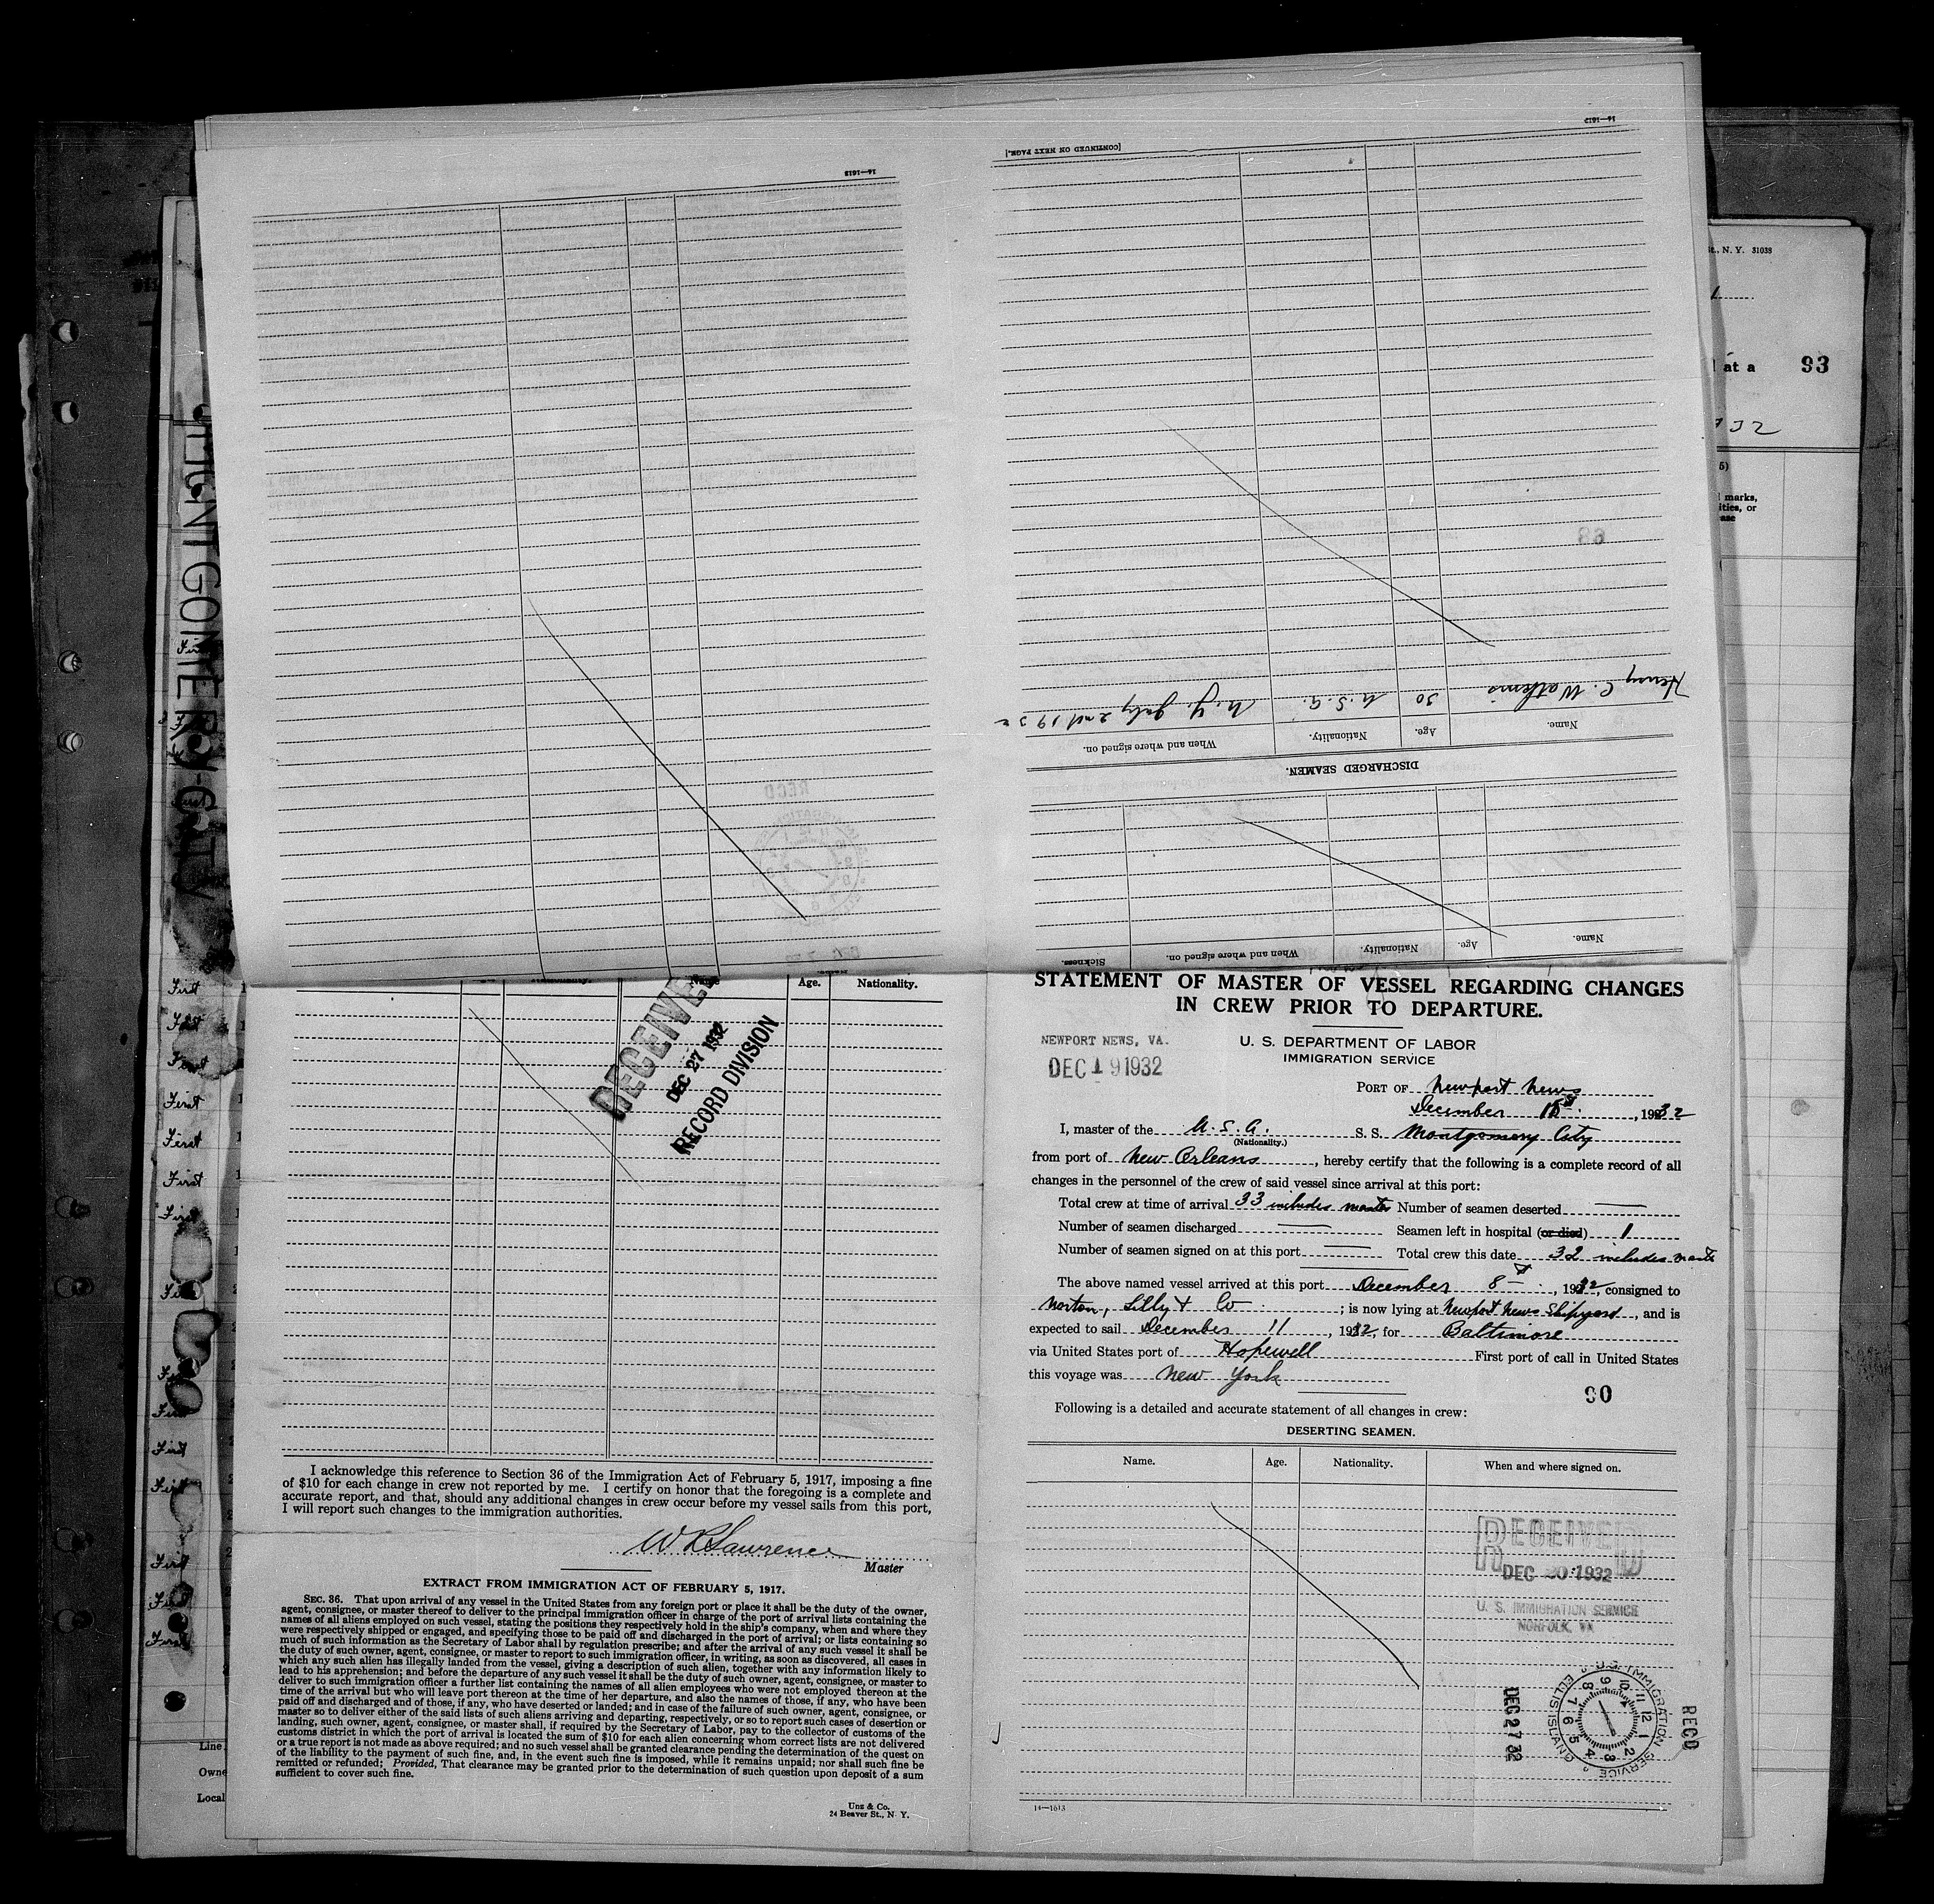 14—1613
[CONTINUED ON NEXT PAGE.]
14—1613
Henry C. Watkins 30 U.S.A. N.Y. July 2nd 1932
Name. Age. Nationality. When and where signed on.
DISCHARGED SEAMEN.
Name. Age. Nationality. When and where signed on. Sickness.
St., N. Y. 31038
at a 93
5)
marks,
ities, or
ase
First
First
First
First
First
First
First
First
First
First
First
First
Line
Owne
Local
Age. Nationality.
RECEIVED
DEC 27 1932
RECORD DIVISION
I acknowledge this reference to Section 36 of the Immigration Act of February 5, 1917, imposing a fine
of $10 for each change in crew not reported by me. I certify on honor that the foregoing is a complete and
accurate report, and that, should any additional changes in crew occur before my vessel sails from this port,
I will report such changes to the immigration authorities.
W R Lawrence
Master
EXTRACT FROM IMMIGRATION ACT OF FEBRUARY 5, 1917.
SEC. 36. That upon arrival of any vessel in the United States from any foreign port or place it shall be the duty of the owner,
agent, consignee, or master thereof to deliver to the principal immigration officer in charge of the port of arrival lists containing the
names of all aliens employed on such vessel, stating the positions they respectively hold in the ship's company, when and where they
were respectively shipped or engaged, and specifying those to be paid off and discharged in the port of arrival; or lists containing so
much of such information as the Secretary of Labor shall by regulation prescribe; and after the arrival of any such vessel it shall be
the duty of such owner, agent, consignee, or master to report to such immigration officer, in writing, as soon as discovered, all cases in
which any such alien has illegally landed from the vessel, giving a description of such alien, together with any information likely to
lead to his apprehension; and before the departure of any such vessel it shall be the duty of such owner, agent, consignee, or master to
deliver to such immigration officer a further list containing the names of all alien employees who were not employed thereon at the
time of the arrival but who will leave port thereon at the time of her departure, and also the names of those, if any, who have been
paid off and discharged and of those, if any, who have deserted or landed; and in case of the failure of such owner, agent, consignee, or
master so to deliver either of the said lists of such aliens arriving and departing, respectively, or so to report such cases of desertion or
landing, such owner, agent, consignee, or master shall, if required by the Secretary of Labor, pay to the collector of customs of the
customs district in which the port of arrival is located the sum of $10 for each alien concerning whom correct lists are not delivered
or a true report is not made as above required; and no such vessel shall be granted clearance pending the determination of the quest on
of the liability to the payment of such fine, and, in the event such fine is imposed, while it remains unpaid; nor shall such fine be
remitted or refunded; Provided, That clearance may be granted prior to the determination of such question upon deposit of a sum
sufficient to cover such fine.
Unz & Co.
24 Beaver St., N. Y.
STATEMENT OF MASTER OF VESSEL REGARDING CHANGES
IN CREW PRIOR TO DEPARTURE.
NEWPORT NEWS, VA.
DEC 19 1932
U. S. DEPARTMENT OF LABOR
IMMIGRATION SERVICE
PORT OF Newport News
December , 1932
I, master of the U.S.A. S. S. Montgomery City
(Nationality.)
from port of New Orleans, hereby certify that the following is a complete record of all
changes in the personnel of the crew of said vessel since arrival at this port:
Total crew at time of arrival 33 includes master Number of seamen deserted —
Number of seamen discharged — Seamen left in hospital (or died) 1
Number of seamen signed on at this port — Total crew this date 32 includes master
The above named vessel arrived at this port December 8th, 1932, consigned to
Norton, Lilly & Co ; is now lying at Newport News Shipyard, and is
expected to sail December 11, 1932, for Baltimore
via United States port of Hopewell First port of call in United States
this voyage was New York
90
Following is a detailed and accurate statement of all changes in crew:
DESERTING SEAMEN.
Name. Age. Nationality. When and where signed on.
RECEIVED
DEC 20 1932
U. S. IMMIGRATION SERVICE
NORFOLK, VA
U.S. IMMIGRATION SERVICE ELLIS ISLAND
12 1 2 3 4 5 6 7 8 9 10 11
DEC 27 32
RECD
14—1613